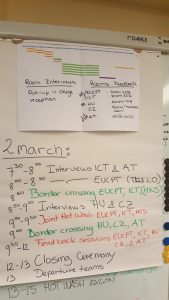 Room Interviews
Pick-up in Office
reception
Rooms Feedback
EUCPT
ICT
HU
CZ
AT
2 March:
7³⁰-8⁰⁰ Interviews ICT & AT
8⁰⁰-8³⁰ EUCPT
8⁰⁰ Border crossing EUCPT, ICT
8³⁰-9⁰⁰ Interviews HU & CZ
9⁰⁰ Joint Hot Wash EUCPT, ICT
9⁰⁰ Border crossing HU, CZ, AT
9³⁰-12 Feedback sessions EUCPT, ICT, HU
CZ, AT
12-13 Closing Ceremony
13 Departure teams
13-15 HOT WASH EXCON